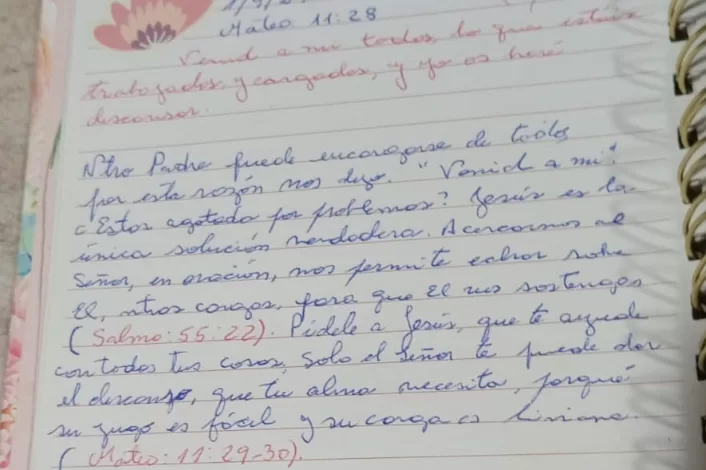 Mateo 11:28
Venid a mi todos, lo que estáis
trabajados, y cargados, y yo os haré
descansar.
Ntro Padre puede encargarse de todos
por esta razón nos dijo. "Venid a mi".
¿Estas agotado por problemas? Jesús es la
única solución verdadera. Acercarnos al
Señor, en oración, nos permite echar sobre
El, ntras cargas, para que El nos sostenga
(Salmo: 55:22). Pídele a Jesús, que te ayude
con todas tus cosas, solo el Señor te puede dar
el descanso, que tu alma necesita, porqué
su yugo es fácil y su carga es liviana.
(Mateo: 11:29-30).